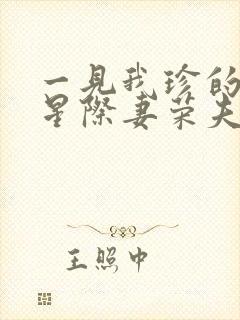 一見我珍的
星際妻荣夫
王照中